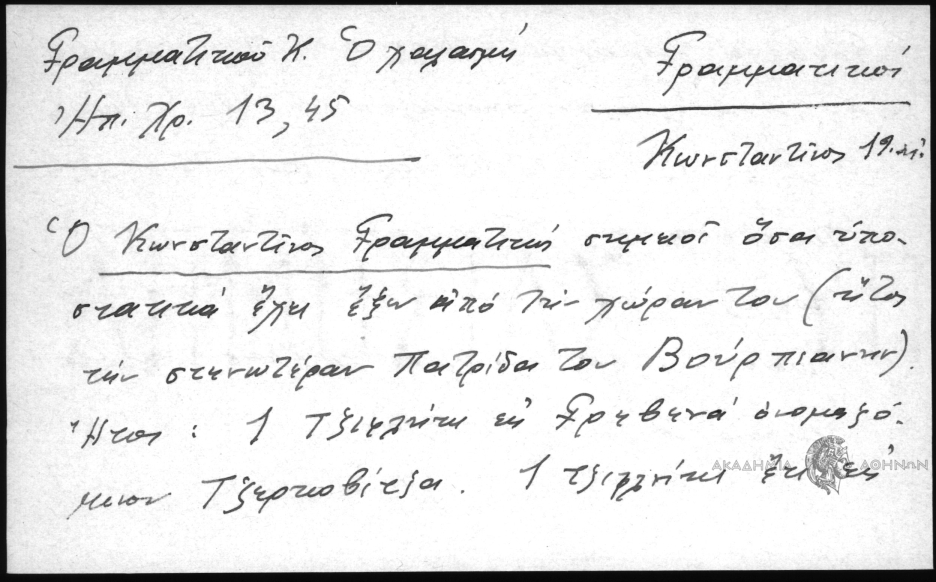 Γραμματικοῦ Κ. Ὁ χαλασμός
Ἠπ. Χρ. 13, 45
Γραμματικός
Κωνσταντίνος 19. αἰ.
Ὁ Κωνσταντίνος Γραμματικός σημειοῖ ὅσα ὑπο-
στατικά ἔχει ἔξω ἀπό τήν χώραν του (ἤτοι
τήν στενωτέραν πατρίδα του Βούρπιανην).
Ἤτοι: 1 τζιφλίκι εἰς Γρεβενά ὀνομαζό-
μενον Τζερκοβίτζα. 1 τζιφλίκι εἰς
ΑΚΑΔΗΜΙΑ ΑΘΗΝΩΝ